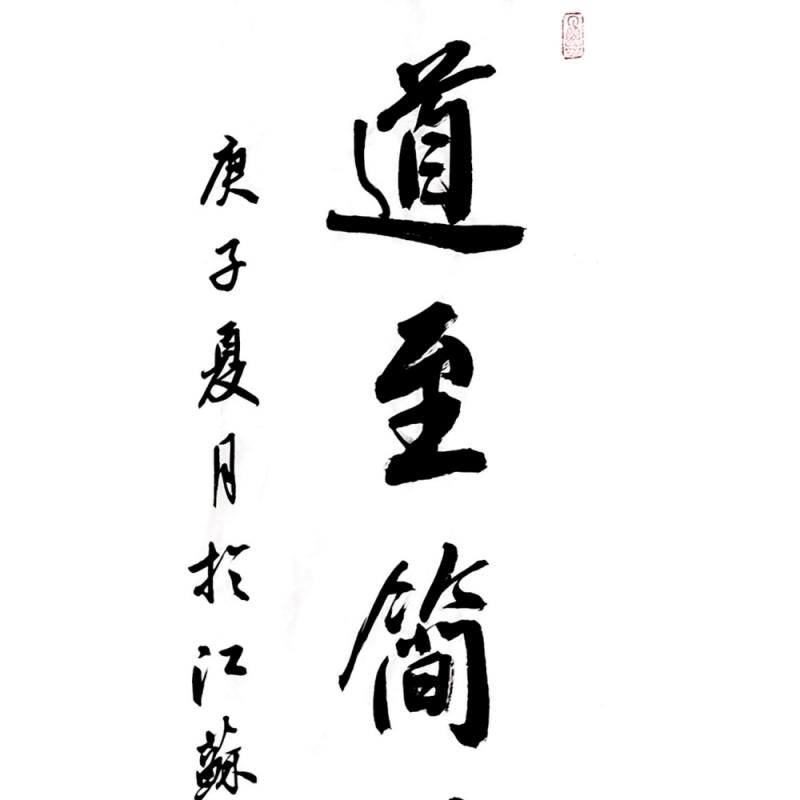 道至简
庚子夏月於江蘇